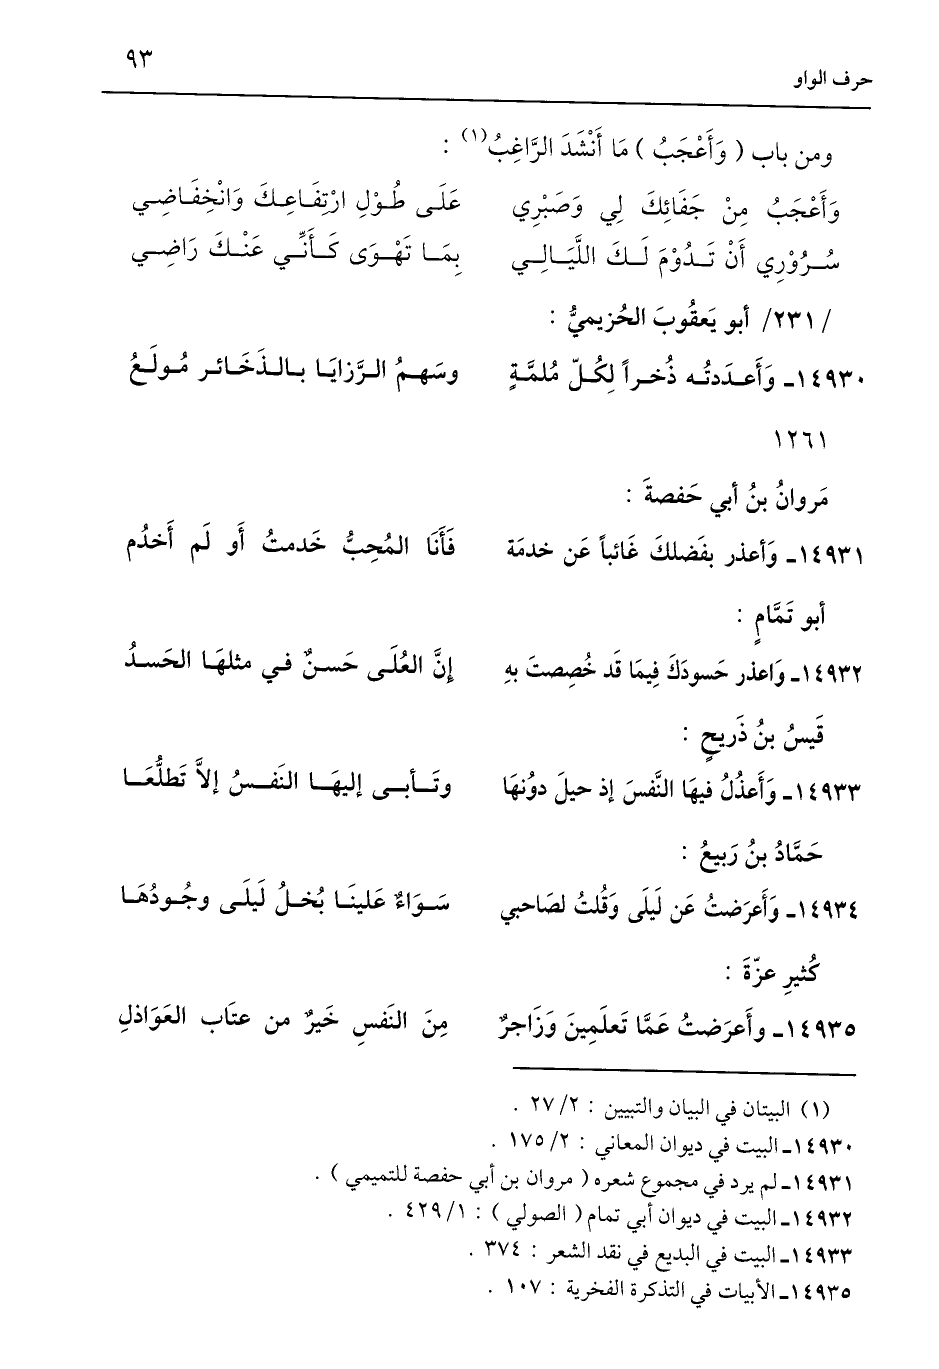 حرف الواو ٩٣
ومن باب ( وَأَعْجَبُ ) مَا أَنْشَدَ الرَّاغِبُ(١) :
وَأَعْجَبُ مِنْ جَفَائِكَ لِي وَصَبْرِي عَلَى طُوْلِ ارْتِفَاعِكَ وَانْخِفَاضِي
سُرُوْرِي أَنْ تَدُوْمَ لَكَ اللَّيَالِي بِمَا تَهْوَى كَأَنِّي عَنْكَ رَاضِي
/ ٢٣١/ أبو يَعقُوبَ الخُزيميُّ :
١٤٩٣٠ـ وَأَعدَدتُه ذُخراً لِكُلّ مُلمَّةٍ وسَهمُ الرَّزايَا بالذَخَائر مُولَعُ
١٢٦١
مَروانُ بنُ أبي حَفصةَ :
١٤٩٣١ـ وَأعذر بفَضلكَ غَائباً عَن خدمَة فَأَنَا المُحِبُّ خَدمتُ أَو لَم أَخدُم
أبو تَمَّامٍ :
١٤٩٣٢ـ وَاعذر حَسودَكَ فِيمَا قَد خُصِصتَ بهِ إنَّ العُلَى حَسنٌ في مثلهَا الحَسدُ
قَيسُ بنُ ذَريحٍ :
١٤٩٣٣ـ وَأَعذُلُ فيهَا النَّفسَ إذ حيلَ دوُنهَا وتَأبى إليهَا النَفسُ إلاَّ تَطلُّعَا
حَمَّادُ بنُ رَبيعُ :
١٤٩٣٤ـ وَأَعرَضتُ عَن لَيلَى وَقُلتُ لصَاحبي سَوَاءٌ عَلينَا بُخلُ لَيلَى وجُودُهَا
كُثيرِ عزّةَ :
١٤٩٣٥ـ وأَعرَضتُ عَمَّا تَعلَمِينَ وَزَاجرٌ مِنَ النَفسِ خَيرٌ من عتَاب العَوَاذلِ
(١) البيتان في البيان والتبيين : ٢/ ٢٧ .
١٤٩٣٠ـ البيت في ديوان المعاني : ٢/ ١٧٥ .
١٤٩٣١ـ لم يرد في مجموع شعره ( مروان بن أبي حفصة للتميمي ) .
١٤٩٣٢ـ البيت في ديوان أبي تمام ( الصولي ) : ١/ ٤٢٩ .
١٤٩٣٣ـ البيت في البديع في نقد الشعر : ٣٧٤ .
١٤٩٣٥ـ الأبيات في التذكرة الفخرية : ١٠٧ .